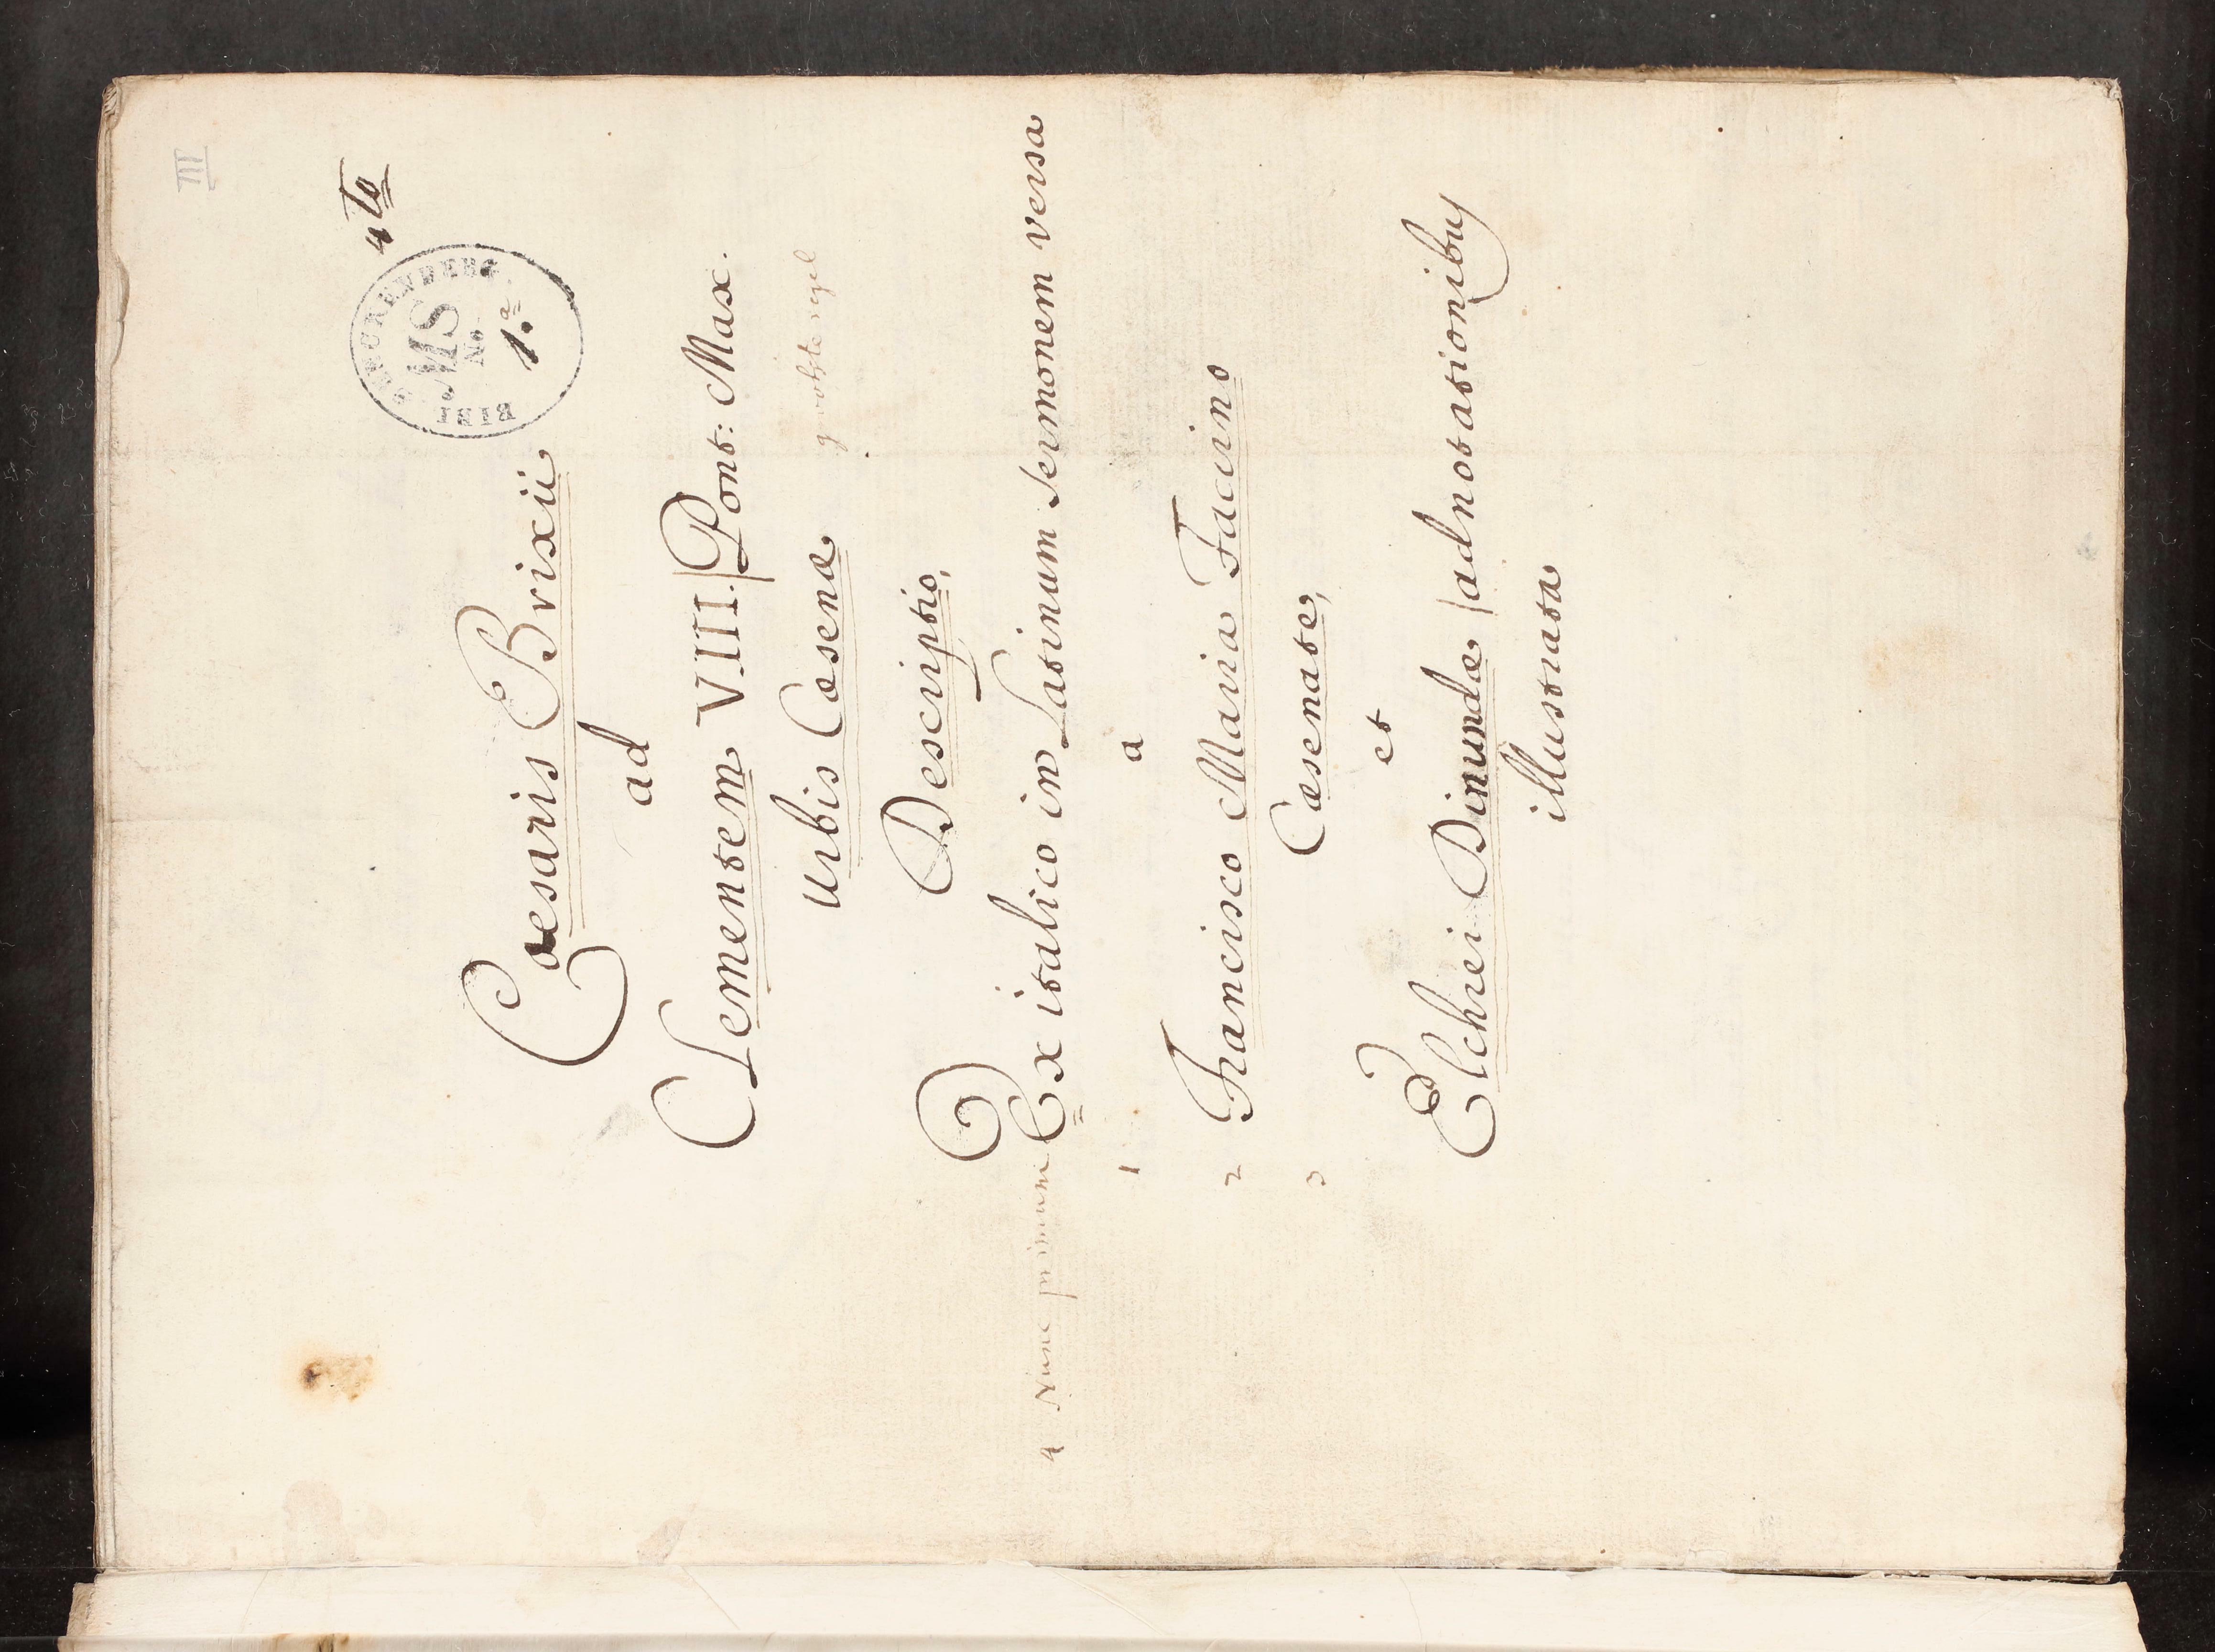 III
4to
MS
No
1.a
Caesaris Brixii
ad
Clementem VIII. Pont: Max.
grootste regel
Urbis Cæsenæ
Descriptio,
4 Nunc primum Ex italico in Latinum Sermonem versa
1 a
2 Francisco Maria Facino
3 Cæsenate,
et
Elchrei Dinundæ adnotationibus
illustrata